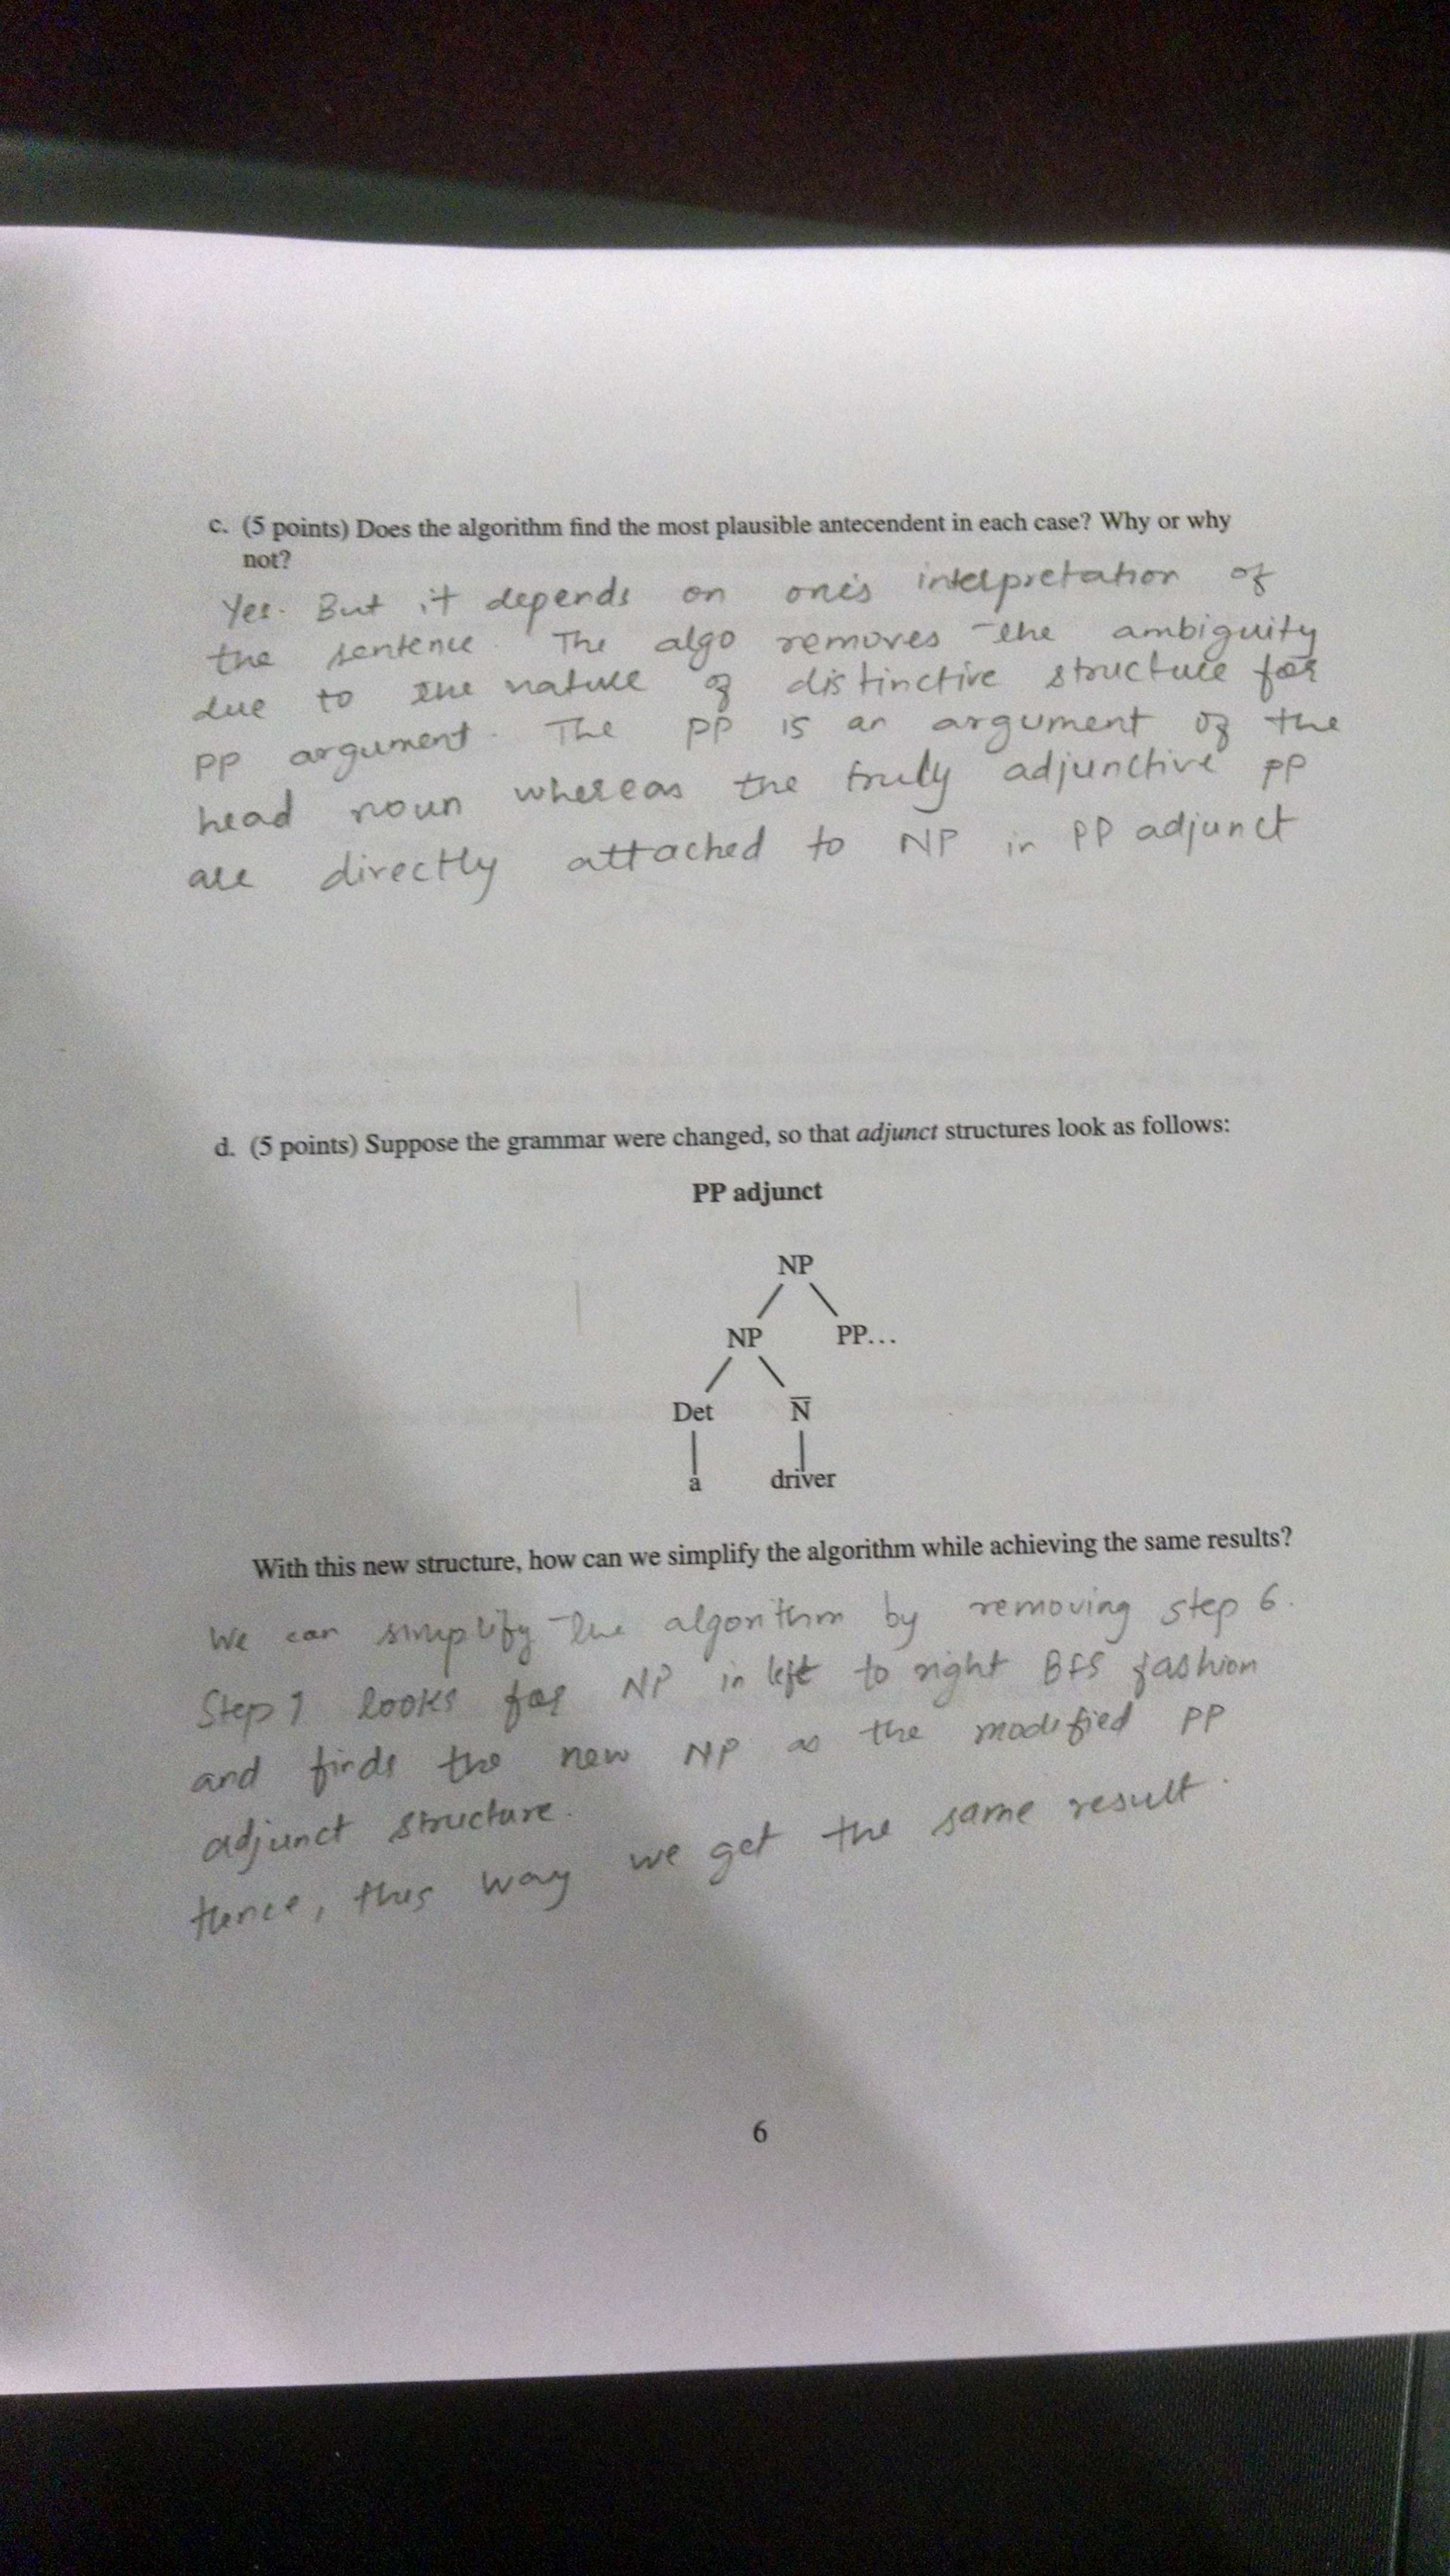 c. (5 points) Does the algorithm find the most plausible antecendent in each case? Why or why
not?
Yes. But it depends on one's interpretation of
the sentence. The algo removes the ambiguity
due to the nature of distinctive structure for
PP argument. The PP is an argument of the
head noun whereas the truly adjunctive PP
are directly attached to NP in PP adjunct
d. (5 points) Suppose the grammar were changed, so that adjunct structures look as follows:
PP adjunct
NP
NP PP...
Det N̅
a driver
With this new structure, how can we simplify the algorithm while achieving the same results?
We can simplify the algorithm by removing step 6.
Step 1 looks for NP in left to right BFS fashion
and finds the new NP as the modified PP
adjunct structure.
Hence, this way we get the same result.
6